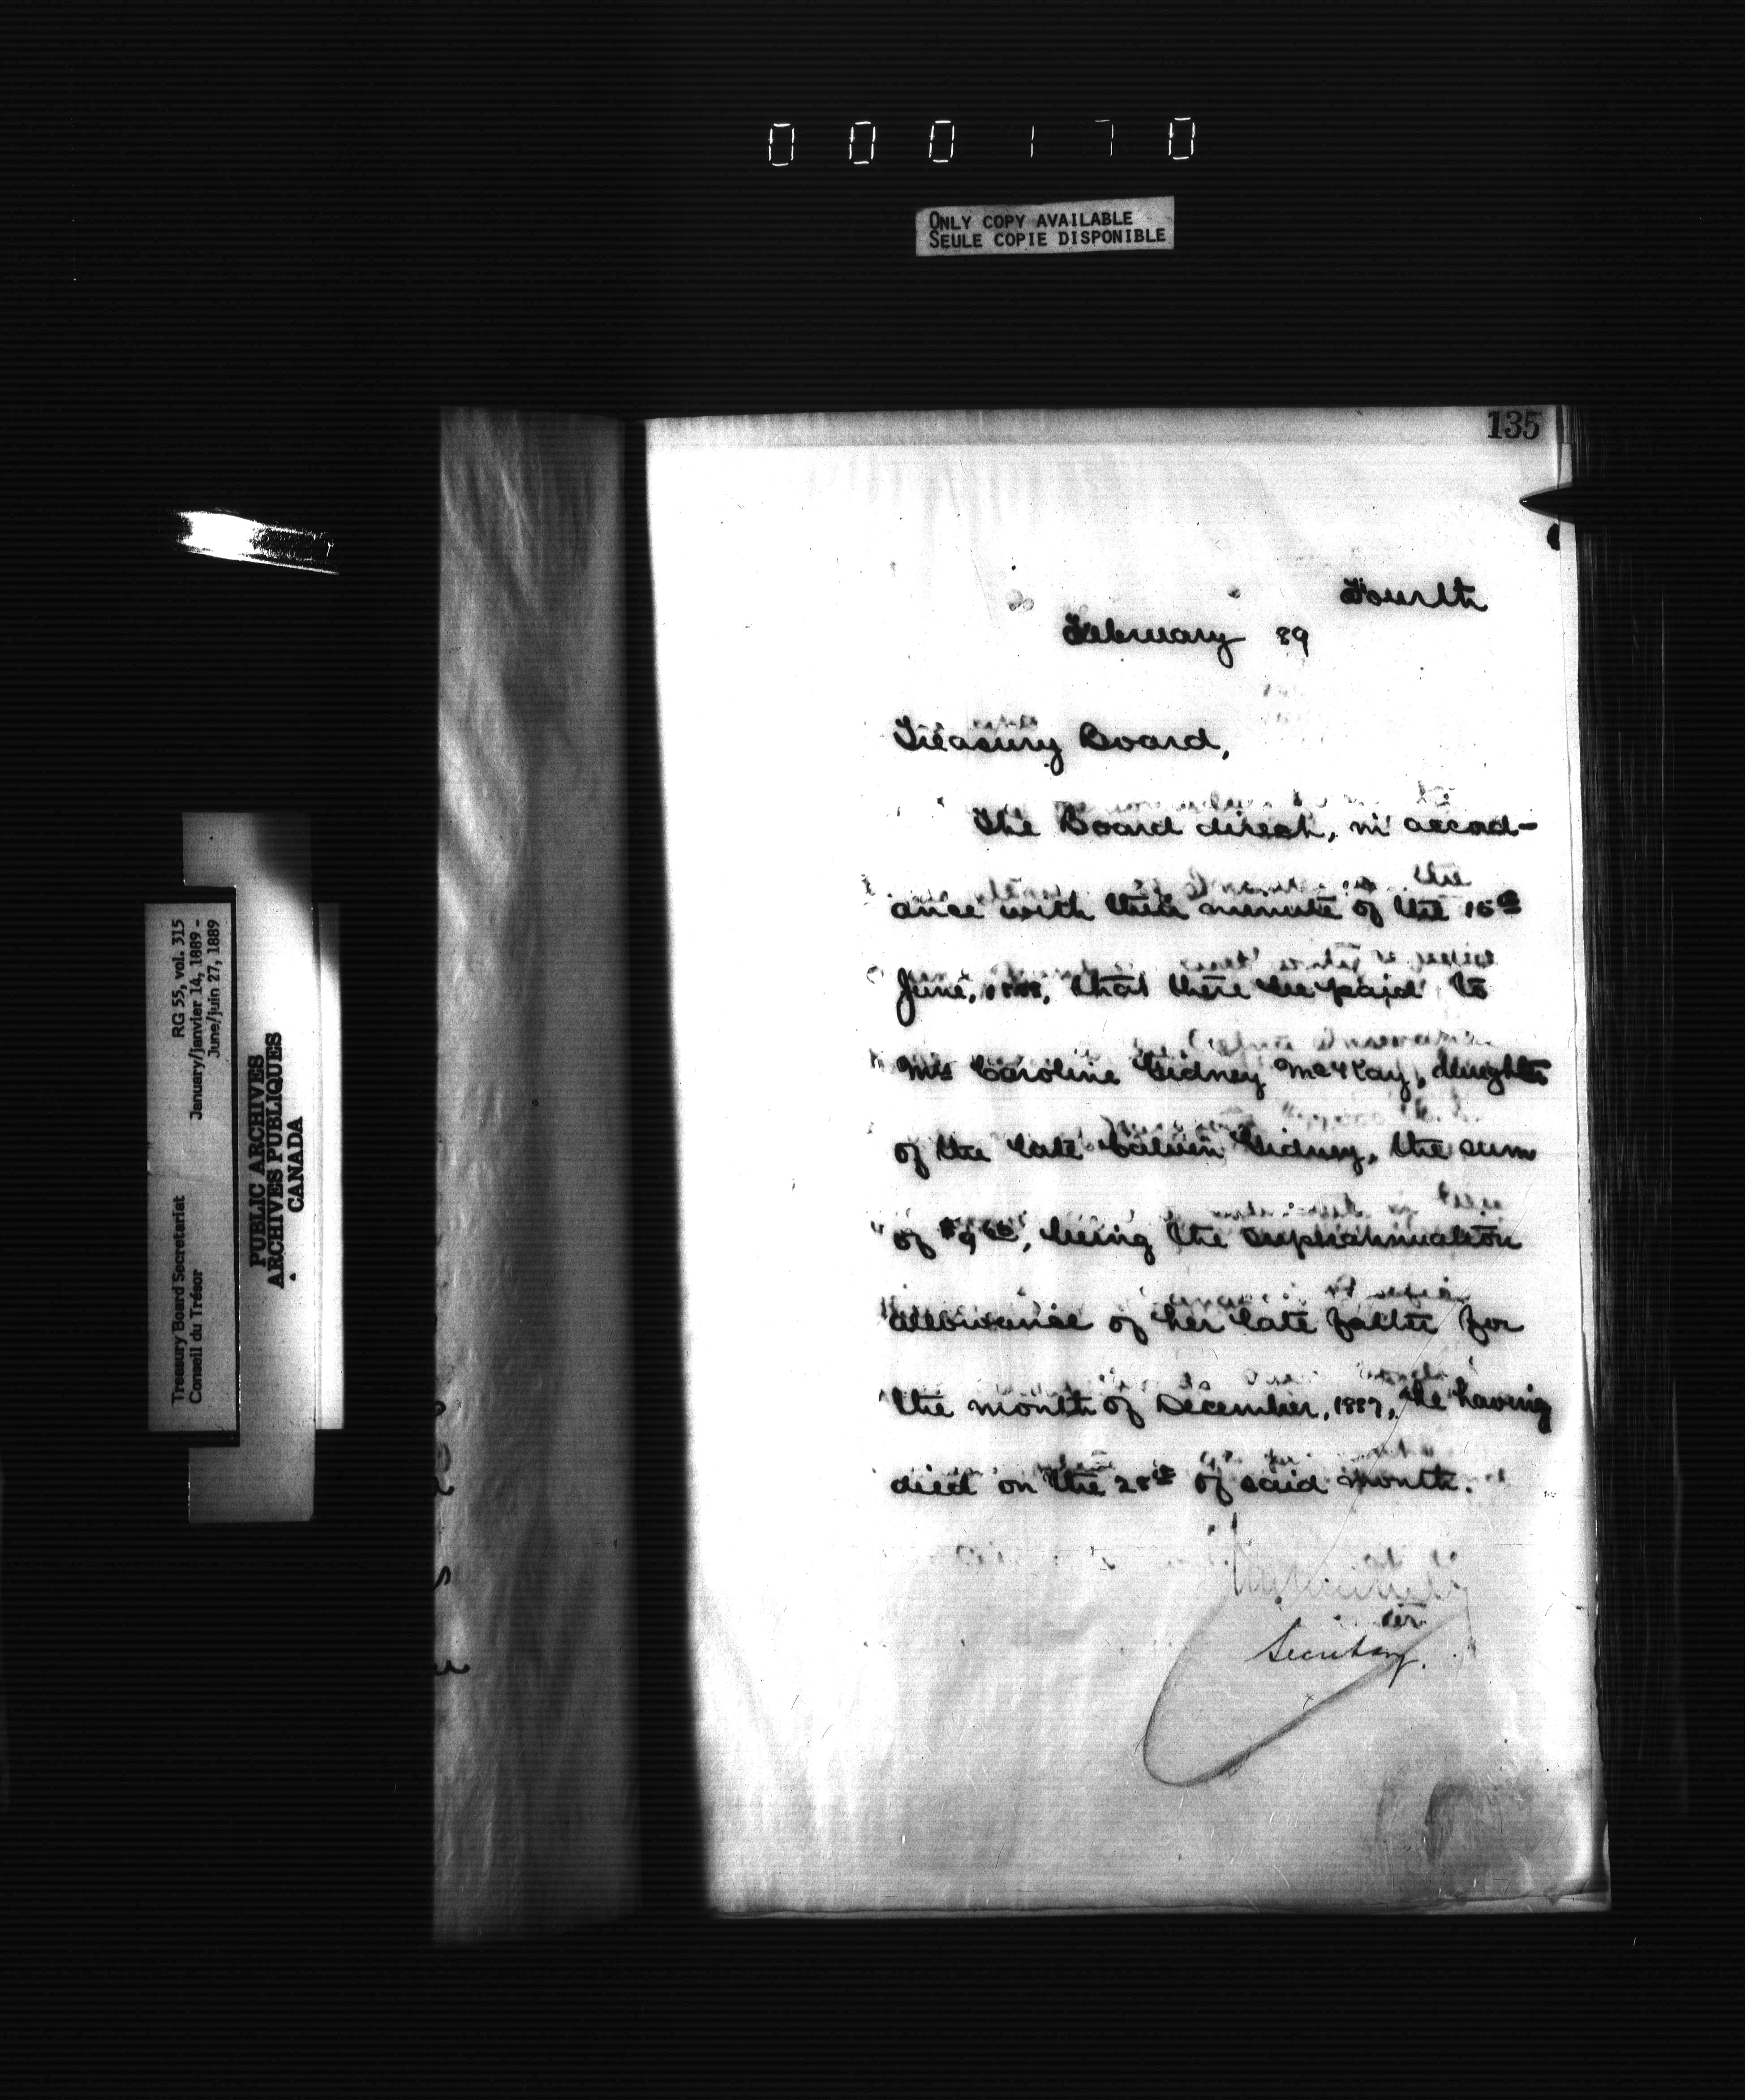 000170
ONLY COPY AVAILABLE
SEULE COPIE DISPONIBLE
135
Fourth
February 89
Treasury Board,
The Board direct, in accord-
ance with their minute of the 15th
June, 1888, that there be paid to
Mrs Caroline Gidney McKay, daughter
of the late Gidney, the sum
of $9 being the superannuation
allowance of her late father for
the month of December, 1887, he having
died on the 28th of said month.
Secretary.
Treasury Board Secretariat
Conseil du Trésor
RG 55, vol. 315
January/janvier 14, 1889 -
June/juin 27, 1889
PUBLIC ARCHIVES
ARCHIVES PUBLIQUES
CANADA